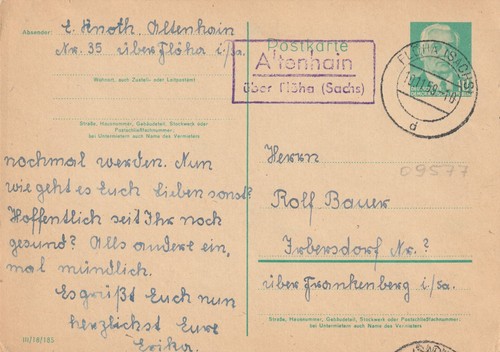 Absender: E. Knoth. Altenhain
Nr. 35 über Flöha i/Sa.
Wohnort, auch Zustell- oder Leitpostamt
Straße, Hausnummer, Gebäudeteil, Stockwerk oder Postschließfachnummer;
bei Untermietern auch Name des Vermieters
Postkarte
Altenhain
über Flöha (Sachs)
FLÖHA (SACHS)
d
nochmal werden. Nun
wie geht es Euch Lieben sonst?
Hoffentlich seit Ihr noch
gesund? Alls andere ein,
mal mündlich.
Es grüßt Euch nun
herzlichst Eure
Erika.
III/18/185
Herrn
09577
Rolf Bauer
Irbersdorf Nr. ?
über Frankenberg i/Sa.
Straße, Hausnummer, Gebäudeteil, Stockwerk oder Postschließfachnummer;
bei Untermietern auch Name des Vermieters